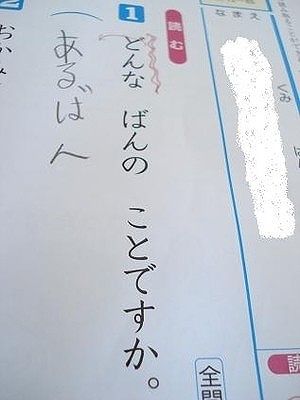 なまえ
くみ
読む
1 どんな ばんの ことですか。
(あるばん
2
全問
読